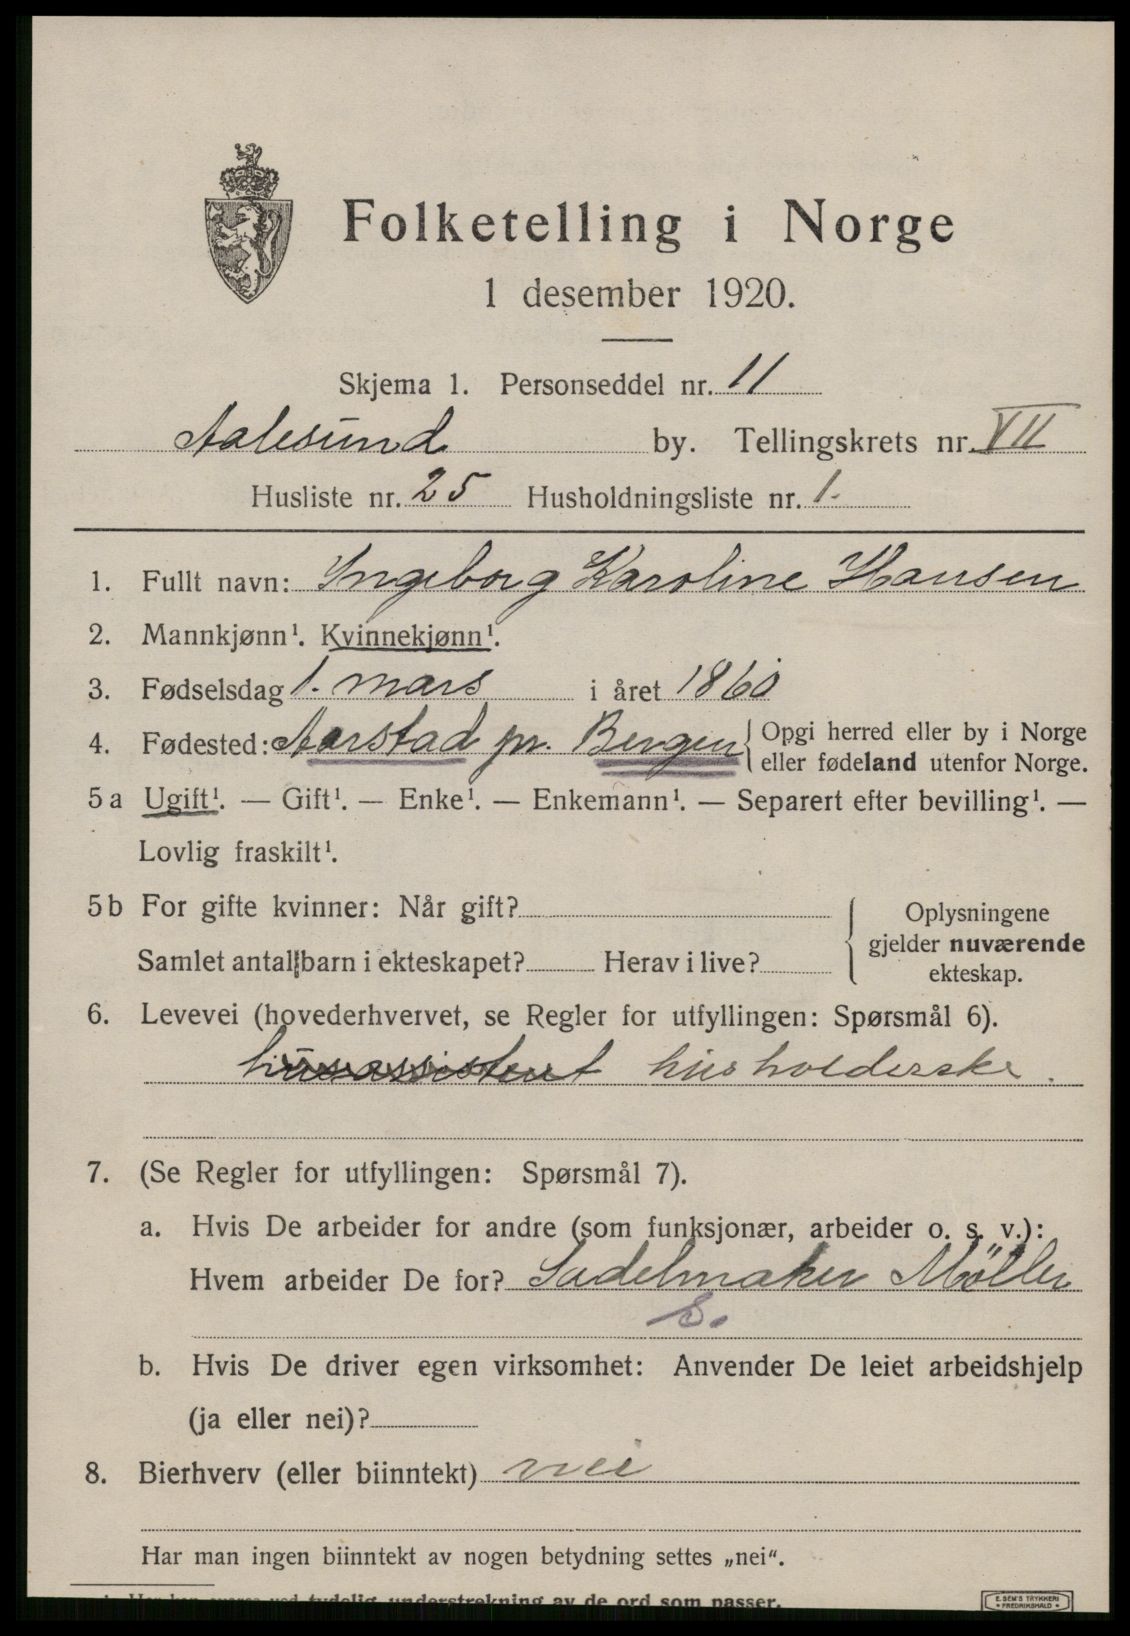 Folketelling i Norge
1 desember 1920.
Skjema 1. Personseddel nr. 11
Aalesund by. Tellingskrets nr. VII
Husliste nr. 25 Husholdningsliste nr. 1.
1. Fullt navn: Ingeborg Karoline Hansen
2. Mannkjønn¹. Kvinnekjønn¹.
3. Fødselsdag 1. mars i året 1860
4. Fødested: Aarstad pr. Bergen { Opgi herred eller by i Norge
eller fødeland utenfor Norge.
5 a Ugift¹. — Gift¹. — Enke¹. — Enkemann¹. — Separert efter bevilling¹. —
Lovlig fraskilt¹.
5 b For gifte kvinner: Når gift?
Samlet antal barn i ekteskapet? Herav i live?
{ Oplysningene
gjelder nuværende
ekteskap.
6. Levevei (hovederhvervet, se Regler for utfyllingen: Spørsmål 6).
husassistent husholderske.
7. (Se Regler for utfyllingen: Spørsmål 7).
a. Hvis De arbeider for andre (som funksjonær, arbeider o. s. v.):
Hvem arbeider De for? Sadelmaker Møller
b. Hvis De driver egen virksomhet: Anvender De leiet arbeidshjelp
(ja eller nei)?
8. Bierhverv (eller biinntekt) nei
Har man ingen biinntekt av nogen betydning settes „nei“.
tydelig understrekning av de ord som passer.
E. SEM'S TRYKKERI
• FREDRIKSHALD •